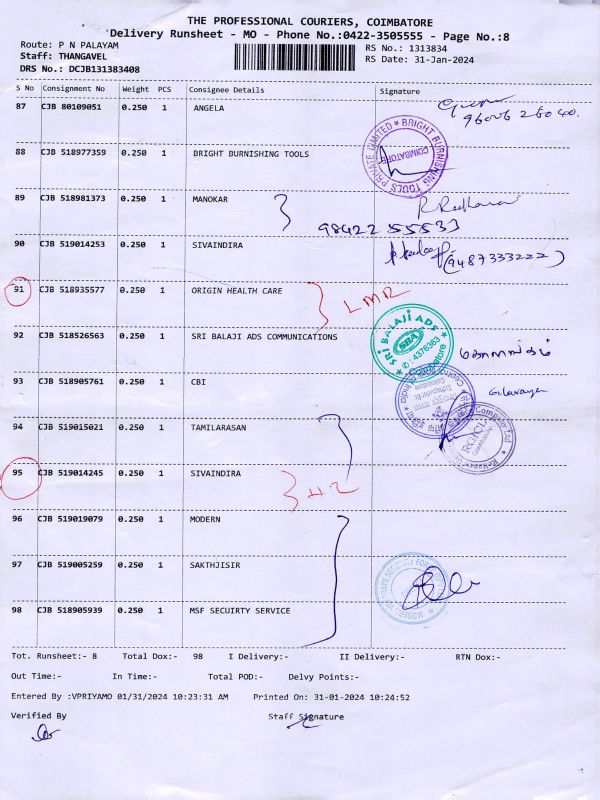 THE PROFESSIONAL COURIERS, COIMBATORE
Delivery Runsheet - MO - Phone No.:0422-3505555 - Page No.:8
Route: P N PALAYAM
RS No.: 1313834
Staff: THANGAVEL
RS Date: 31-Jan-2024
DRS No.: DCJB131383408
S No Consignment No Weight PCS Consignee Details Signature
87 CJB 80109051 0.250 1 ANGELA
88 CJB 518977359 0.250 1 BRIGHT BURNISHING TOOLS
BRIGHT BURNISHING TOOLS PRIVATE LIMITED
COIMBATORE
89 CJB 518981373 0.250 1 MANOKAR
90 CJB 519014253 0.250 1 SIVAINDIRA
(9487333222)
91 CJB 518935577 0.250 1 ORIGIN HEALTH CARE
LMR
92 CJB 518526563 0.250 1 SRI BALAJI ADS COMMUNICATIONS
SRI BALAJI ADS
SBA
4376363
Coimbatore
93 CJB 518905761 0.250 1 CBI
94 CJB 519015021 0.250 1 TAMILARASAN
95 CJB 519014245 0.250 1 SIVAINDIRA
96 CJB 519019079 0.250 1 MODERN
97 CJB 519005259 0.250 1 SAKTHJISIR
98 CJB 518905939 0.250 1 MSF SECUIRTY SERVICE
Tot. Runsheet:- 8 Total Dox:- 98 I Delivery:- II Delivery:- RTN Dox:-
Out Time:- In Time:- Total POD:- Delvy Points:-
Entered By :VPRIYAMO 01/31/2024 10:23:31 AM Printed On: 31-01-2024 10:24:52
Verified By Staff Signature